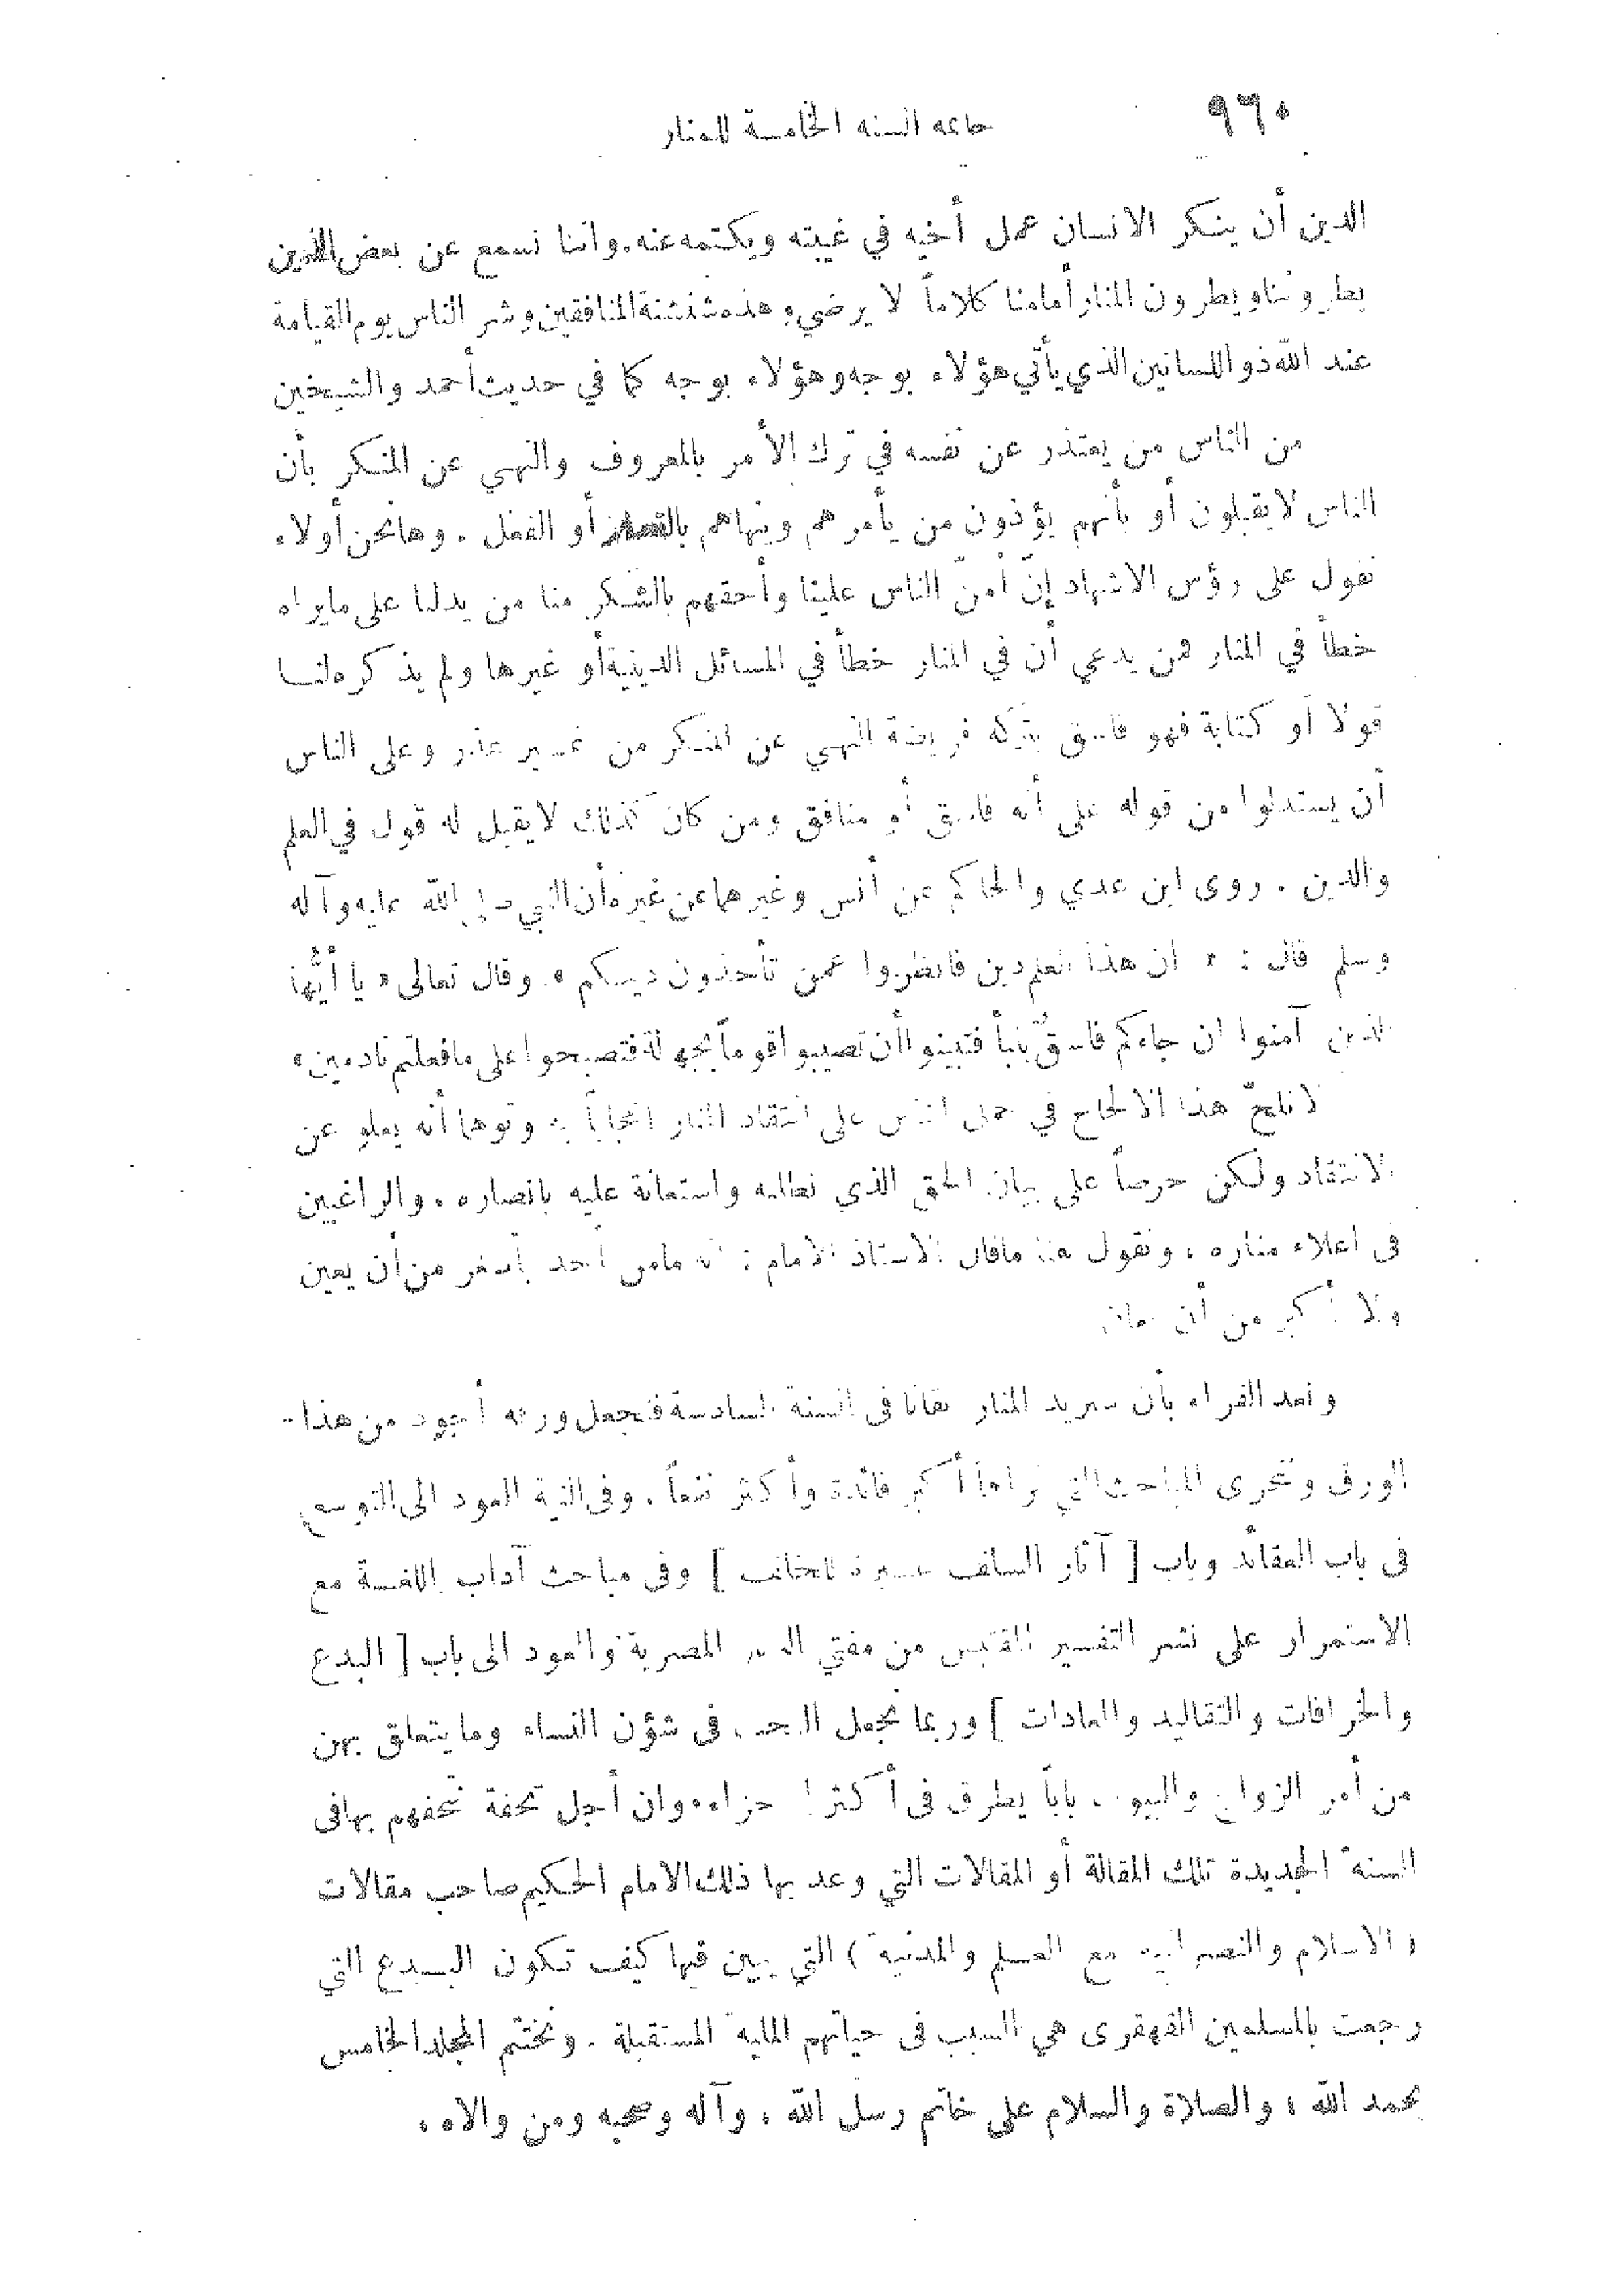 ٩٦٠
خاتمة السنة الخامسة للمنار
الدين أن ينكر الانسان عمل أخيه في غيبته ويكتمه عنه. واننا نسمع عن بعض الذين
يطروننا ويطرون المنار أمامنا كلاماً لا يرضي وهذه شنشنة المنافقين وشر الناس يوم القيامة
عند الله ذو اللسانين الذي يأتي هؤلاء بوجه وهؤلاء بوجه كما في حديث أحمد والشيخين
من الناس من يعتذر عن نفسه في ترك الأمر بالمعروف والنهي عن المنكر بأن
الناس لا يقبلون أو بأنهم يؤذون من يأمرهم وينهاهم أو الفعل . وها نحن أولاء
نقول على رؤس الاشهاد إنّ أمنّ الناس علينا وأحقهم بالشكر منا من يدلنا على مايراه
خطأ في المنار فمن يدعي أن في المنار خطأ في المسائل الدينية أو غيرها ولم يذكره لنا
قولا أو كتابة فهو فاسق بتركه فريضة النهي عن المنكر من غير عذر وعلى الناس
أن يستدلوا من قوله على أنه فاسق أو منافق ومن كان كذلك لا يقبل له قول في العلم
والدين . روى ابن عدي والحاكم عن أنس وغيرهما عن غيره أن النبي صلى الله عليه وآله
وسلم قال : « ان هذا العلم دين فانظروا عمن تأخذون دينكم » وقال تعالى « يا أيُّها
الذين آمنوا ان جاءكم فاسقٌ بنبأ فتبينوا أن تصيبوا قوماً بجهالة فتصبحوا على مافعلتم نادمين »
لا نلحّ هذا الالحاح في حمل الناس على انتقاد المنار اعجاباً به وتوهما أنه يعلو عن
الانتقاد ولكن حرصاً على بيان الحق الذي نطلبه واستعانة عليه بانصاره ، والراغبين
في اعلاء مناره ، ونقول هنا ماقال الاستاذ الامام : انه مامن أحد بأصغر من أن يعين
ولا أكبر من أن يعان
ونعد القراء بأن سنزيد المنار اتقانا في السنة السادسة فنجعل ورقه أجود من هذا
الورق ونتحرى المباحث التي نراها أكبر فائدة وأكثر نفعاً . وفي النية العود الى التوسع
في باب العقائد وباب [ آثار السلف عبرة للخلف ] وفي مباحث آداب اللغة مع
الاستمرار على نشر التفسير المقتبس من مفتي الديار المصرية والعود الى باب [ البدع
والخرافات والتقاليد والعادات ] وربما نجعل البحث في شؤن النساء وما يتعلق بهن
من أمر الزواج والبيوت باباً يطرق في أكثر الاجزاء. وان أجل تحفة نتحفهم بها في
السنة الجديدة تلك المقالة أو المقالات التي وعد بها ذلك الامام الحكيم صاحب مقالات
( الاسلام والنصرانية مع العلم والمدنية ) التي يبين فيها كيف تكون البدع التي
رجعت بالمسلمين القهقرى هي السبب في حياتهم الملية المستقبلة . ونختتم المجلد الخامس
بحمد الله ، والصلاة والسلام على خاتم رسل الله ، وآله وصحبه ومن والاه ،